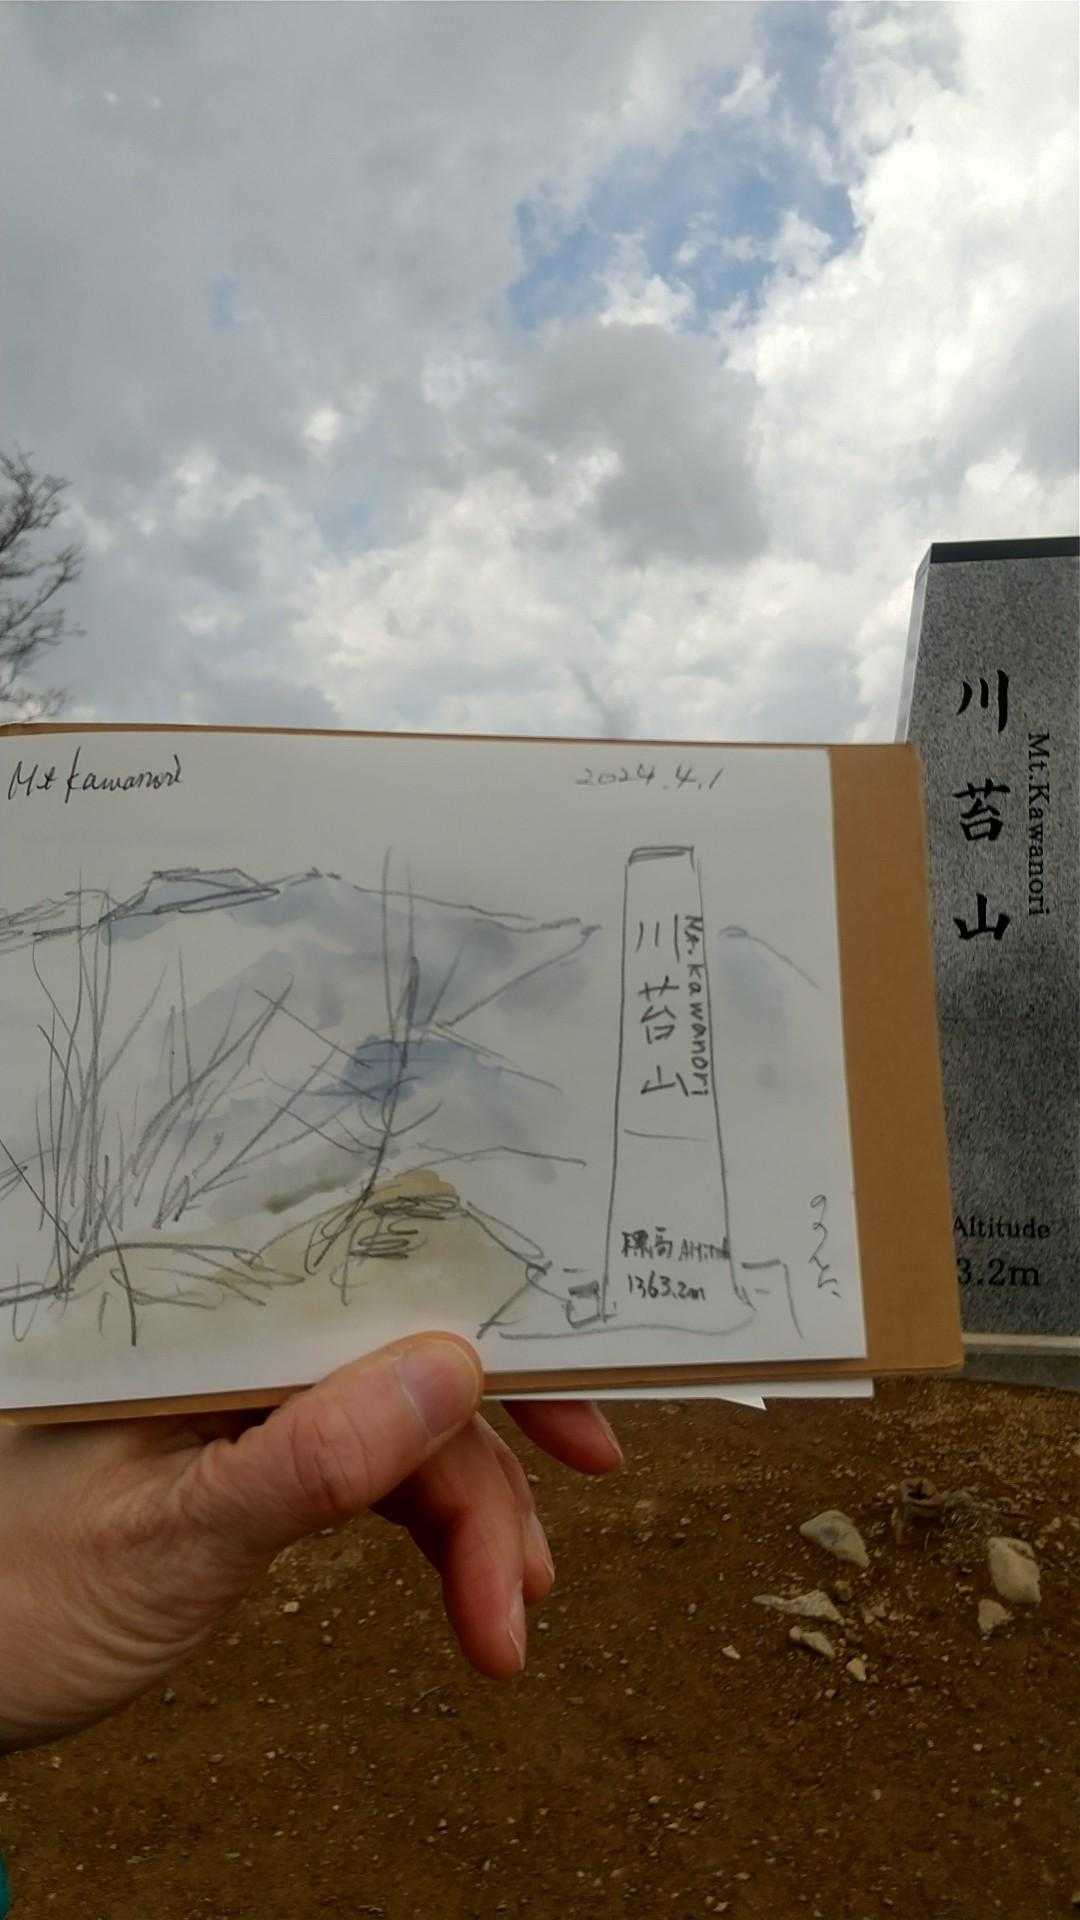 Mt Kawanori
2024.4.1
川苔山
Mt. Kawanori
標高 Altitud
1363.2m
川苔山
Mt.Kawanori
Altitude
3.2m